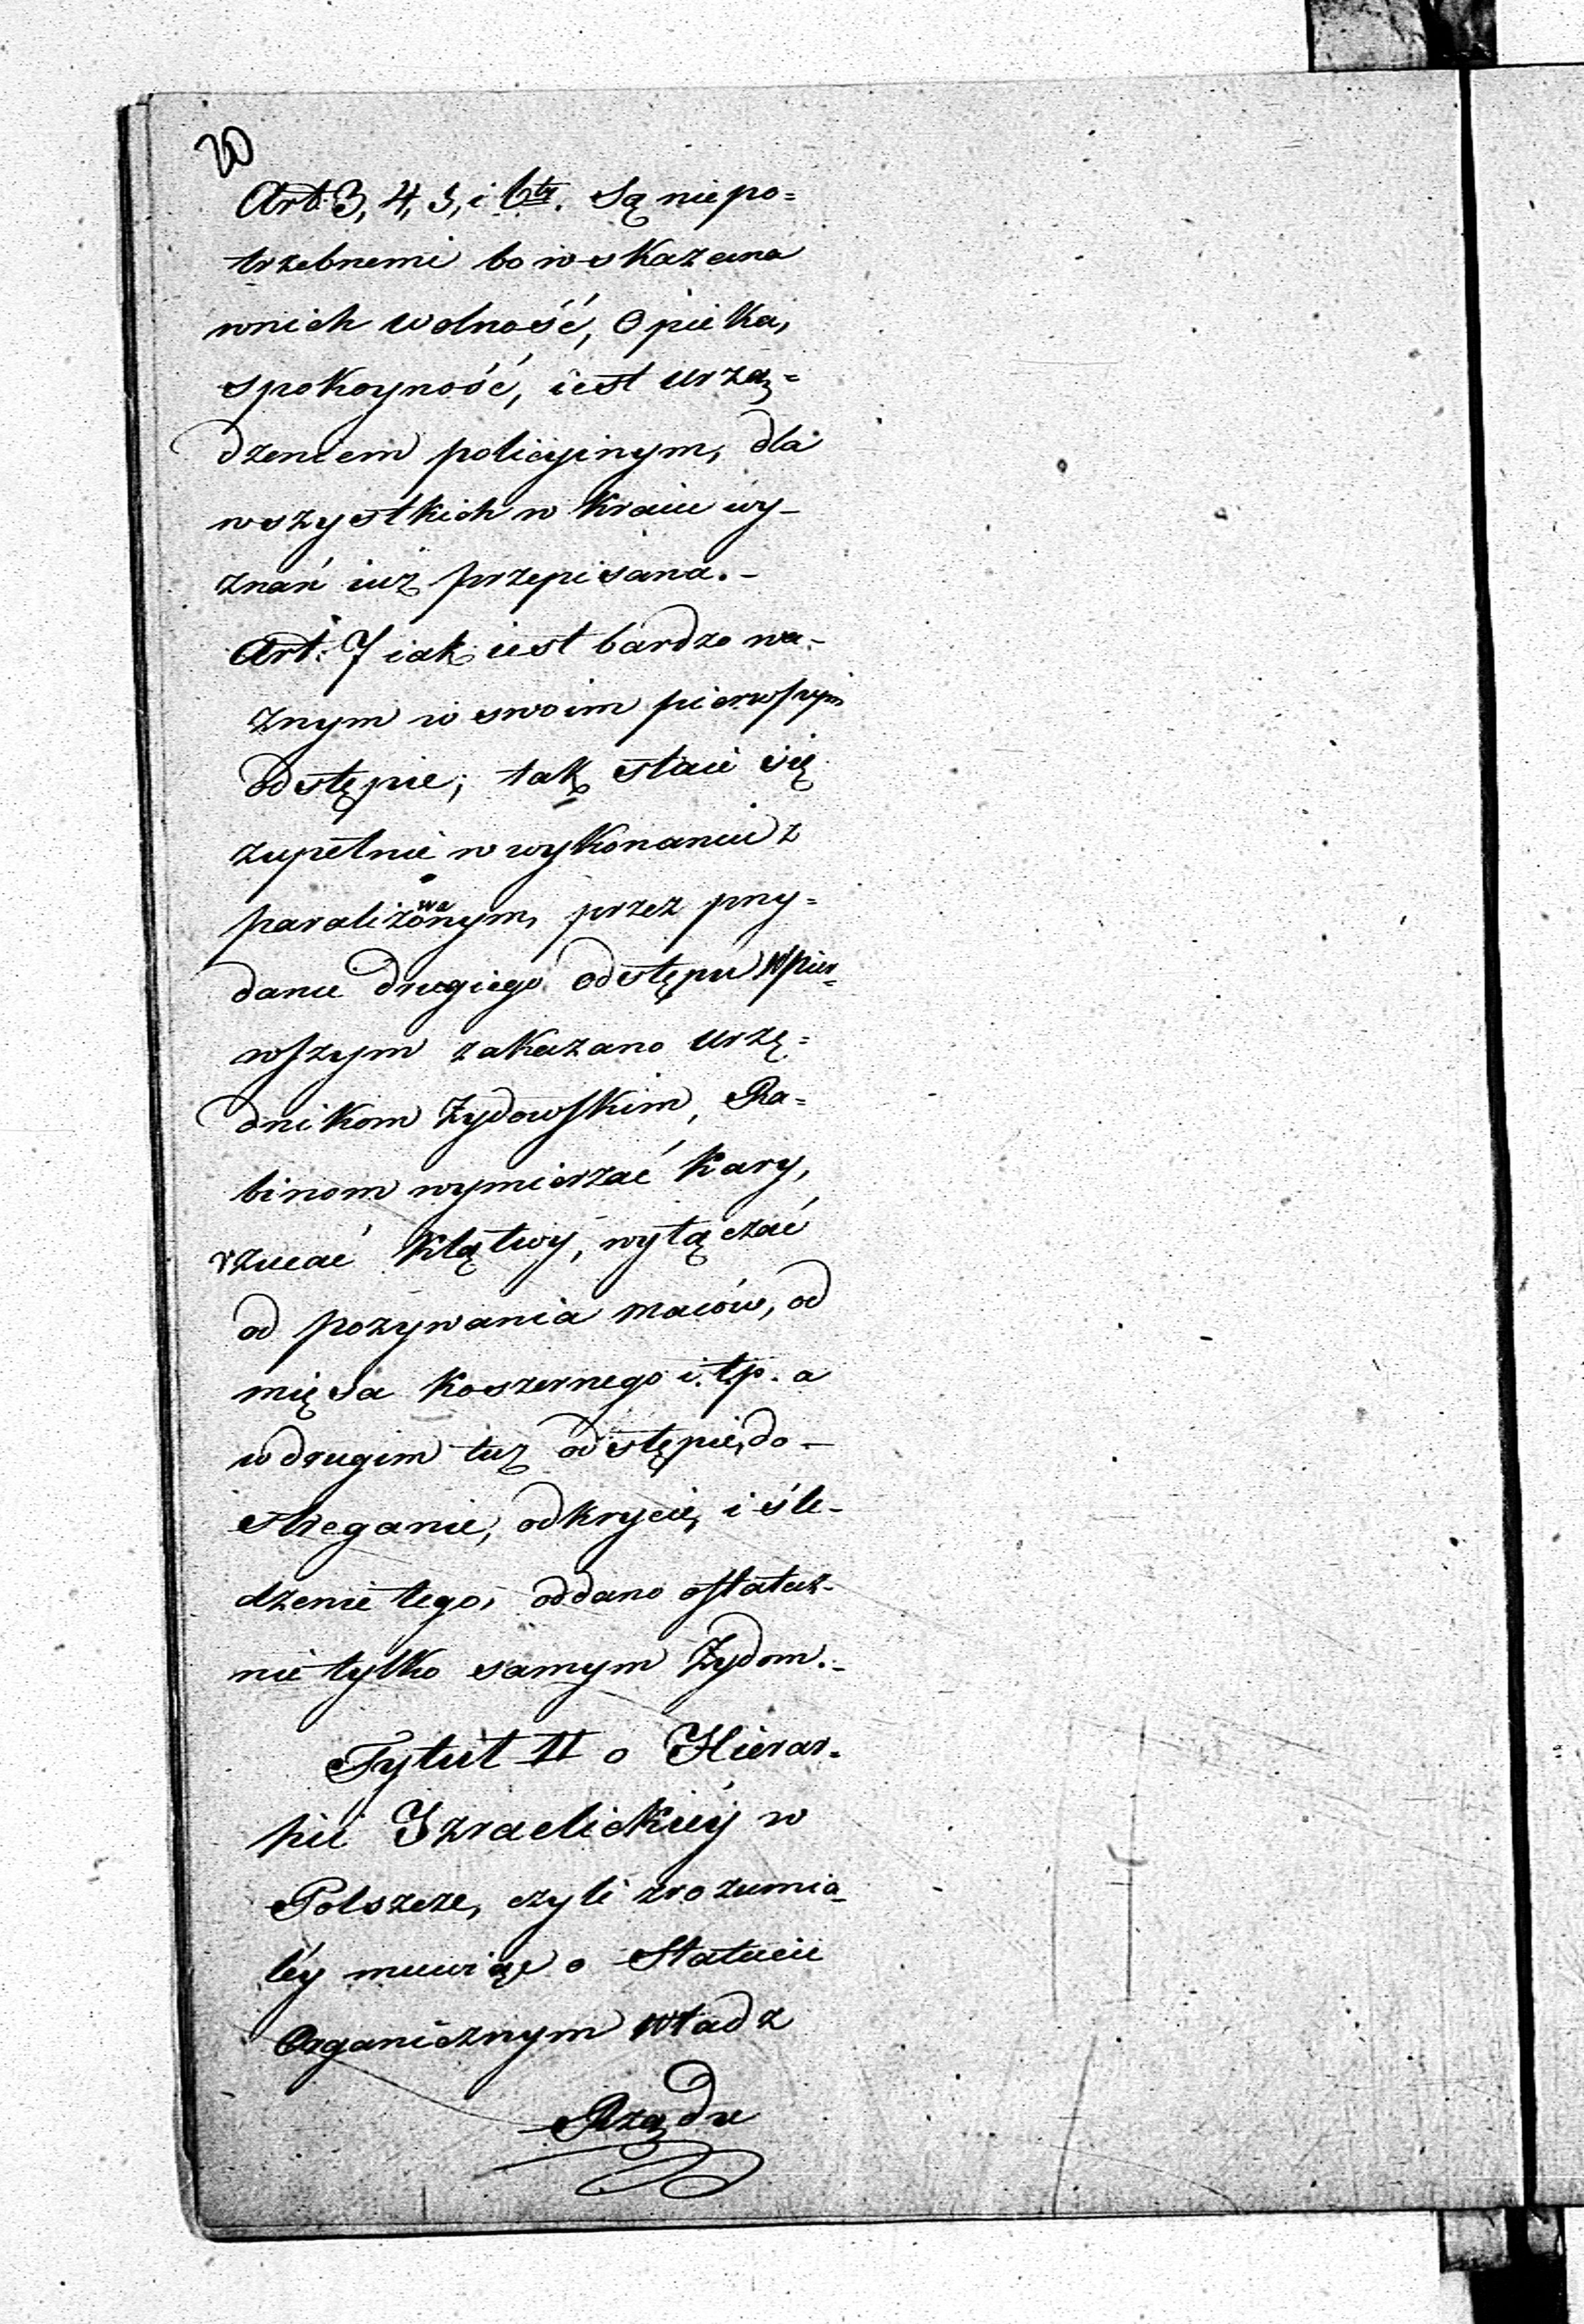 20
Art: 3, 4, 5, i 6ty. Są niepo=
trzebnemi bo wskazana
w nich wolność, Opieka,
spokoyność, iest urzą=
dzeniem policyinym, dla
wszystkich w Kraiu wy-
znań iuż przepisana.-
Art: 7 iak iest bardzo wa-
żnym w swoim pierwszym
odstępie; tak staie się
zupełnie w wykonaniu z
paraliżowanym, przez przy=
danie drugiego odstępu W pier=
wszym zakazano urzę=
dnikom Żydowskim, Ra=
binom wymierzać Kary,
rzucać Klątwy, wyłączać
od pożywania maców, od
mięsa Koszernego i. t.p. a
w drugim tuż odstępie, do-
strzeganie, odkrycie, i śle-
dzenie tego, oddano ostatecz-
nie tylko samym Żydom.-
Tytuł II o Hierar-
hii Izraelickiéy w
Polszcze, czyli zrozumia-
léy muwiąc o Statucie
Organicznym Władz
Rządu